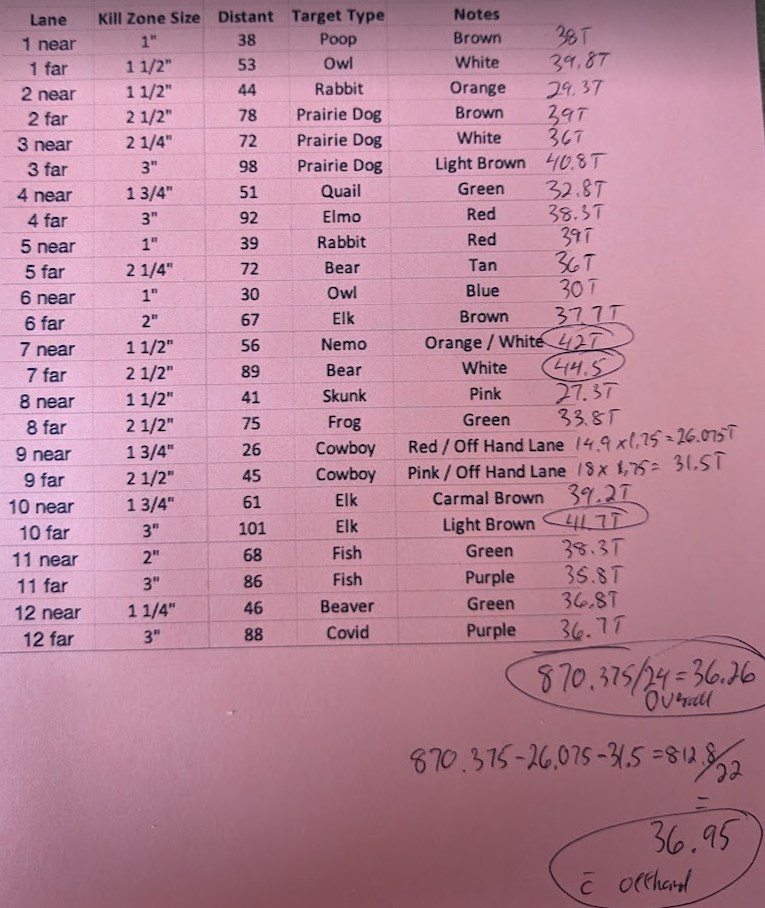 Lane Kill Zone Size Distant Target Type Notes
1 near 1" 38 Poop Brown 38T
1 far 1 1/2" 53 Owl White 39.8T
2 near 1 1/2" 44 Rabbit Orange 29.3T
2 far 2 1/2" 78 Prairie Dog Brown 39T
3 near 2 1/4" 72 Prairie Dog White 36T
3 far 3" 98 Prairie Dog Light Brown 40.8T
4 near 1 3/4" 51 Quail Green 32.8T
4 far 3" 92 Elmo Red 38.3T
5 near 1" 39 Rabbit Red 39T
5 far 2 1/4" 72 Bear Tan 36T
6 near 1" 30 Owl Blue 30T
6 far 2" 67 Elk Brown 37.7T
7 near 1 1/2" 56 Nemo Orange / White 42T
7 far 2 1/2" 89 Bear White 44.5
8 near 1 1/2" 41 Skunk Pink 27.3T
8 far 2 1/2" 75 Frog Green 33.8T
9 near 1 3/4" 26 Cowboy Red / Off Hand Lane 14.9 x 1.75 = 26.075T
9 far 2 1/2" 45 Cowboy Pink / Off Hand Lane 18 x 1.75 = 31.5T
10 near 1 3/4" 61 Elk Carmal Brown 39.2T
10 far 3" 101 Elk Light Brown 41.7T
11 near 2" 68 Fish Green 38.3T
11 far 3" 86 Fish Purple 35.8T
12 near 1 1/4" 46 Beaver Green 36.8T
12 far 3" 88 Covid Purple 36.7T
870.375/24 = 36.26
Overall
870.375 - 26.075 - 31.5 = 812.8/22
=
36.95
c̄ offhand